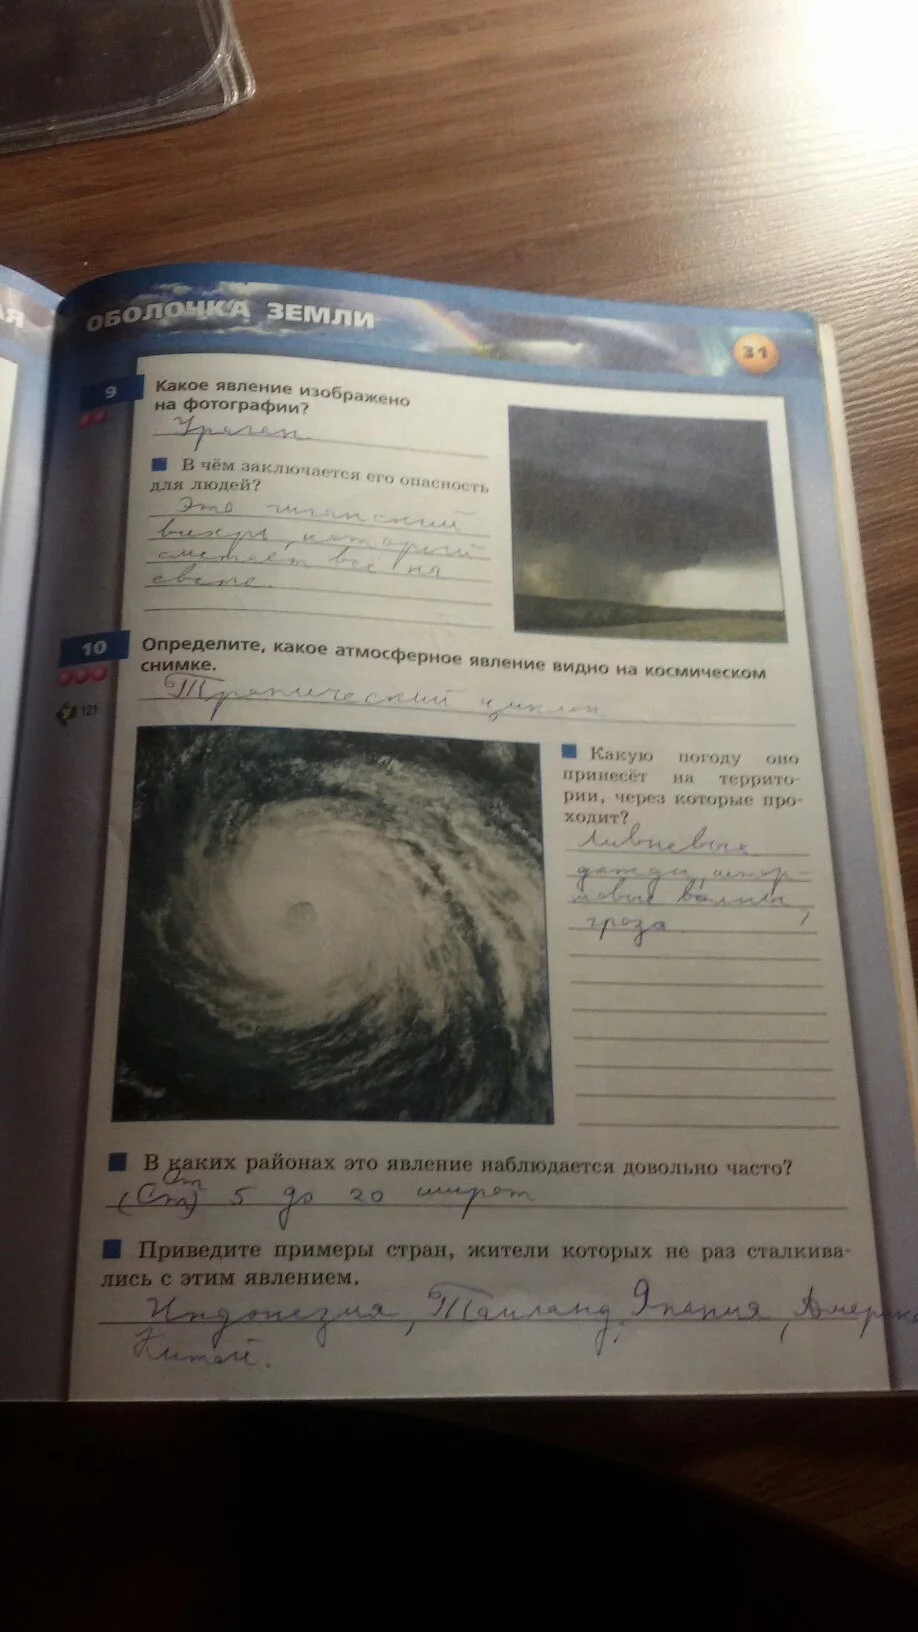 АЯ
ОБОЛОЧКА ЗЕМЛИ
31
9
Какое явление изображено
на фотографии?
Ураган
В чём заключается его опасность
для людей?
Это гиганский
вихрь, который
сметает всё на
свете.
10
Определите, какое атмосферное явление видно на космическом
снимке.
У 121
Тропический циклон
Какую погоду оно
принесёт на террито-
рии, через которые про-
ходит?
Ливневые
дожди, штор-
мовые волны,
гроза.
В каких районах это явление наблюдается довольно часто?
От
(Ст) 5 до 20 широт
Приведите примеры стран, жители которых не раз сталкива-
лись с этим явлением.
Индонезия, Таиланд, Япония, Америка
Китай.